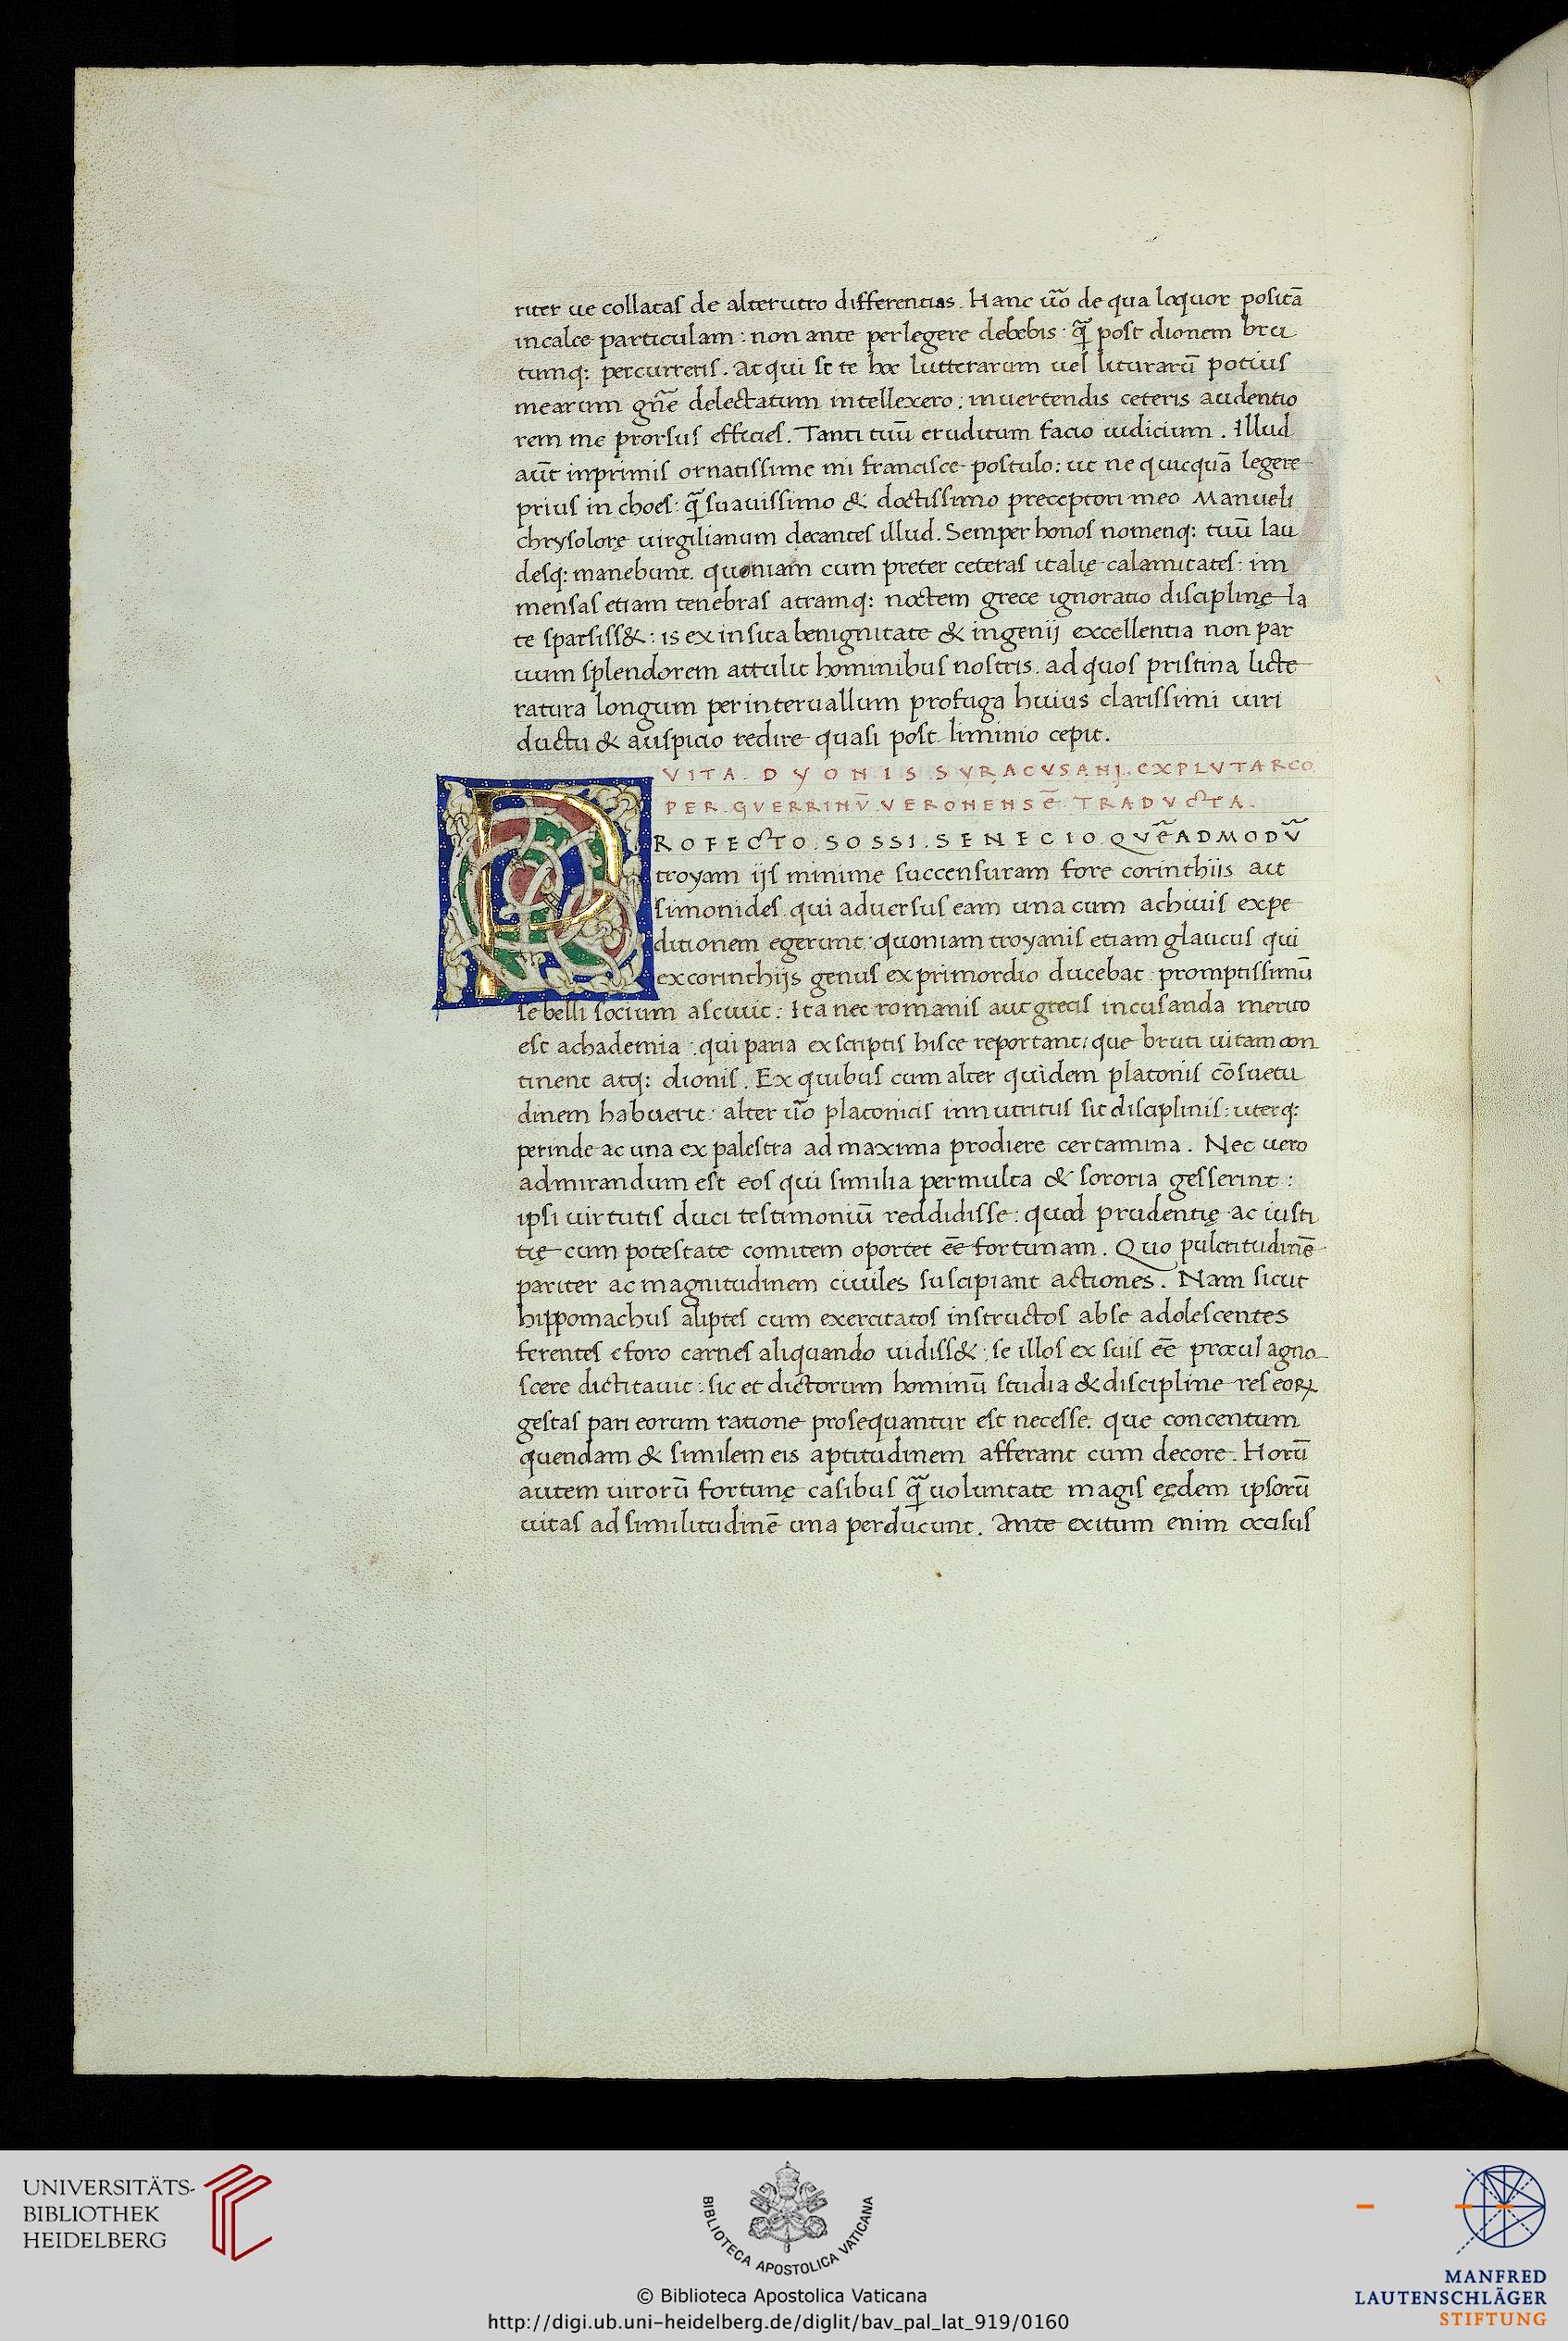 riter ue collatas de alterutro differentias. Hanc ũo de qua loquor positã
in calce particulam: non ante perlegere debebis: q̃ post dionem bru
tumq: percurreris. At qui si te hoc lutterarum uel liturarũ potius
mearum gñe delectatum intellexero: in uertendis ceteris audentio
rem me prorsus efficies. Tanti tuũ eruditum facio iudicium. Illud
aũt inprimis ornatissime mi francisce postulo: ut ne quicquã legere
prius in choes: q̃ suauissimo & doctissimo preceptori meo Manueli
chrysolorę uirgilianum decantes illud. Semper honos nomenq: tuũ lau
desq: manebunt. quoniam cum preter ceteras italię calamitates: im
mensas etiam tenebras atramq: noctem grece ignoratio disciplinę la
te sparsiss&: is ex insita benignitate & ingenij excellentia non par
uum splendorem attulit hominibus nostris. ad quos pristina licte
ratura longum per interuallum profuga huius clarissimi uiri
ductu & auspicio redire quasi post liminio cepit.
VITA. DYONIS SVRACVSANI. EX PLVTARCO
PER. GVERRINṼ. VERONENSẼ TRADVCTA.
PROFECTO. SOSSI. SENECIO QVẼADMODṼ
troyam ijs minime succensuram fore corinthiis ait
simonides. qui aduersus eam una cum achiuis expe
ditionem egerunt: quoniam troyanis etiam glaucus qui
ex corinthijs genus ex primordio ducebat: promptissimũ
se belli socium asciuit: Ita nec romanis aut grecis incusanda merito
est achademia: qui paria ex scriptis hisce reportant: que bruti uitam con
tinent atq: dionis. Ex quibus cum alter quidem platonis cõsuetu
dinem habuerit: alter ũo platonicis innutritus sit disciplinis: uterq:
perinde ac una ex palestra ad maxima prodiere certamina. Nec uero
admirandum est eos qui similia permulta & sororia gesserint:
ipsi uirtutis duci testimoniũ reddidisse: quod prudentię ac iusti
tię cum potestate comitem oportet ẽe fortunam. Quo pulcritudinẽ
pariter ac magnitudinem ciuiles suscipiant actiones. Nam sicut
hippomachus aliptes cum exercitatos instructos abse adolescentes
ferentes e foro carnes aliquando uidiss&: se illos ex suis ẽe procul agno
scere dictitauit: sic et dictorum hominũ studia & discipline res eoꝝ
gestas pari eorum ratione prosequantur est necesse. que concentum
quendam & similem eis aptitudinem afferant cum decore. Horũ
autem uirorũ fortunę casibus q̃ uoluntate magis eędem ipsorũ
uitas ad similitudinẽ una perducunt. Ante exitum enim occisus
UNIVERSITÄTS-
BIBLIOTHEK
HEIDELBERG
BIBLIOTECA APOSTOLICA VATICANA
© Biblioteca Apostolica Vaticana
http://digi.ub.uni-heidelberg.de/diglit/bav_pal_lat_919/0160
MANFRED
LAUTENSCHLÄGER
STIFTUNG